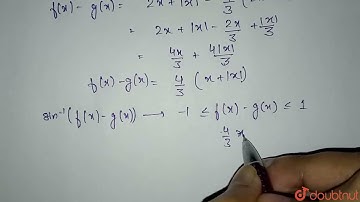 f(x) - g(x) = 2x + |x| - 1/3 (
= 2x + |x| - 2x/3 + |x|/3
= 4x/3 + 4|x|/3
f(x) - g(x) = 4/3 (x + |x|)
sin⁻¹(f(x) - g(x)) → -1 ≤ f(x) - g(x) ≤ 1
4/3 x
doubtnut